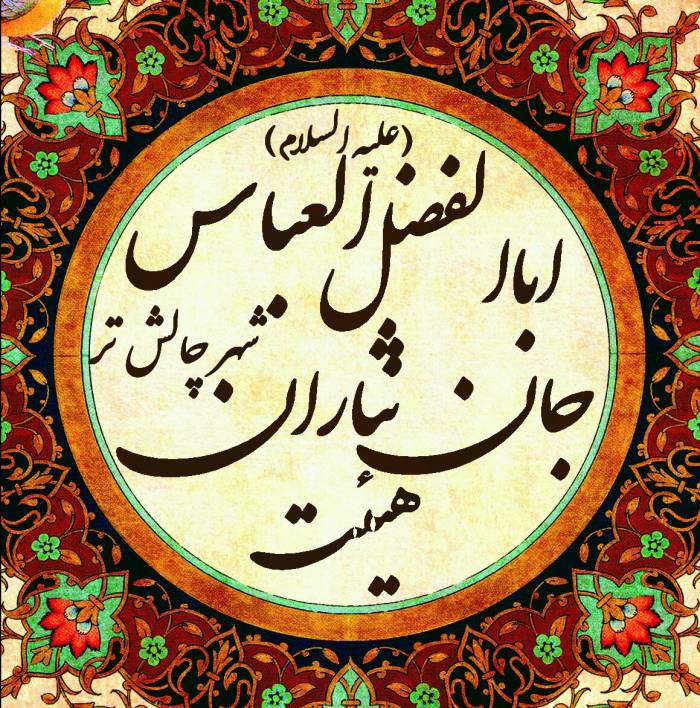 (علیه السلام)
ابا الفضل العباس
جان نثاران
شهر چالش تر
هیئت